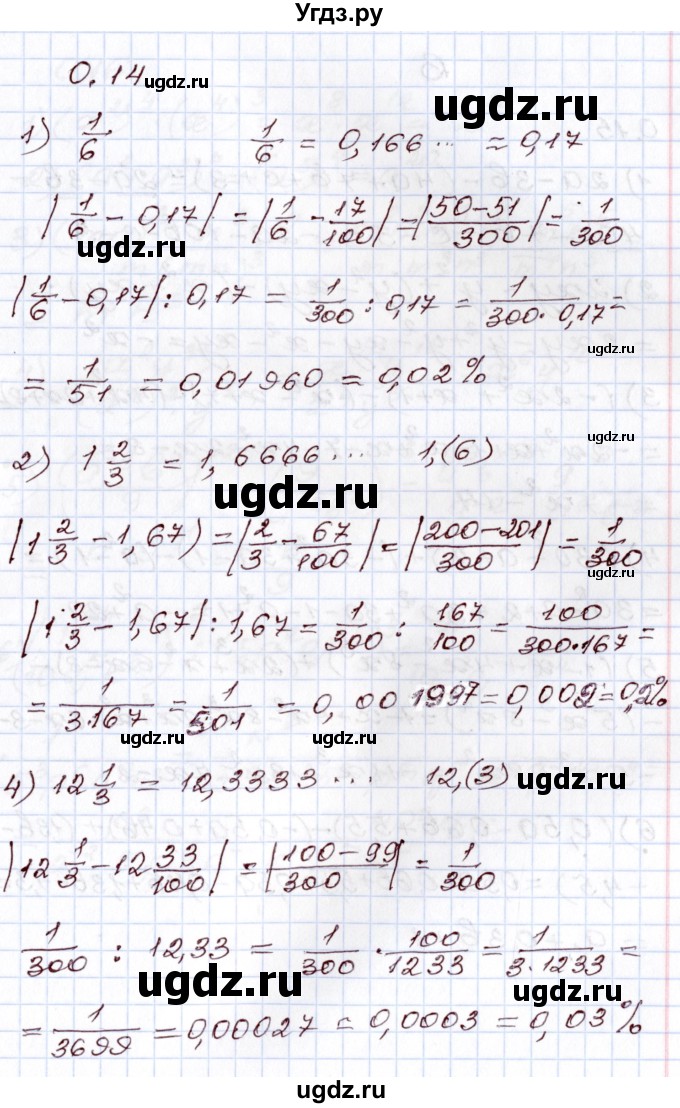 Угдз.ру
0.14 ugdz.ru
ugdz.ru
1) 1/6   1/6 = 0,166... ≈ 0,17
|1/6 - 0,17| = |1/6 - 17/100| = |50-51/300| = 1/300
ugdz.ru ugdz.ru
|1/6 - 0,17| : 0,17 = 1/300 : 0,17 = 1/300·0,17 =
ugdz.ru
= 1/51 = 0,01960 = 0,02%
ugdz.ru
2) 1 2/3 = 1,6666... 1,(6)
ugdz.ru
|1 2/3 - 1,67) = |2/3 - 67/100| = |200-201/300| = 1/300
ugdz.ru
|1 2/3 - 1,67| : 1,67 = 1/300 : 167/100 = 100/300·167 =
= 1/3·167 = 1/501 = 0,001997 = 0,002 = 0,2%
ugdz.ru ugdz.ru
4) 12 1/3 = 12,3333... 12,(3) ugdz.ru
|12 1/3 - 12 33/100| = |100-99/300| = 1/300
1/300 : 12,33 = 1/300 · 100/1233 = 1/3·1233 =
ugdz.ru ugdz.ru
= 1/3699 = 0,00027 = 0,0003 = 0,03%
ugdz.ru